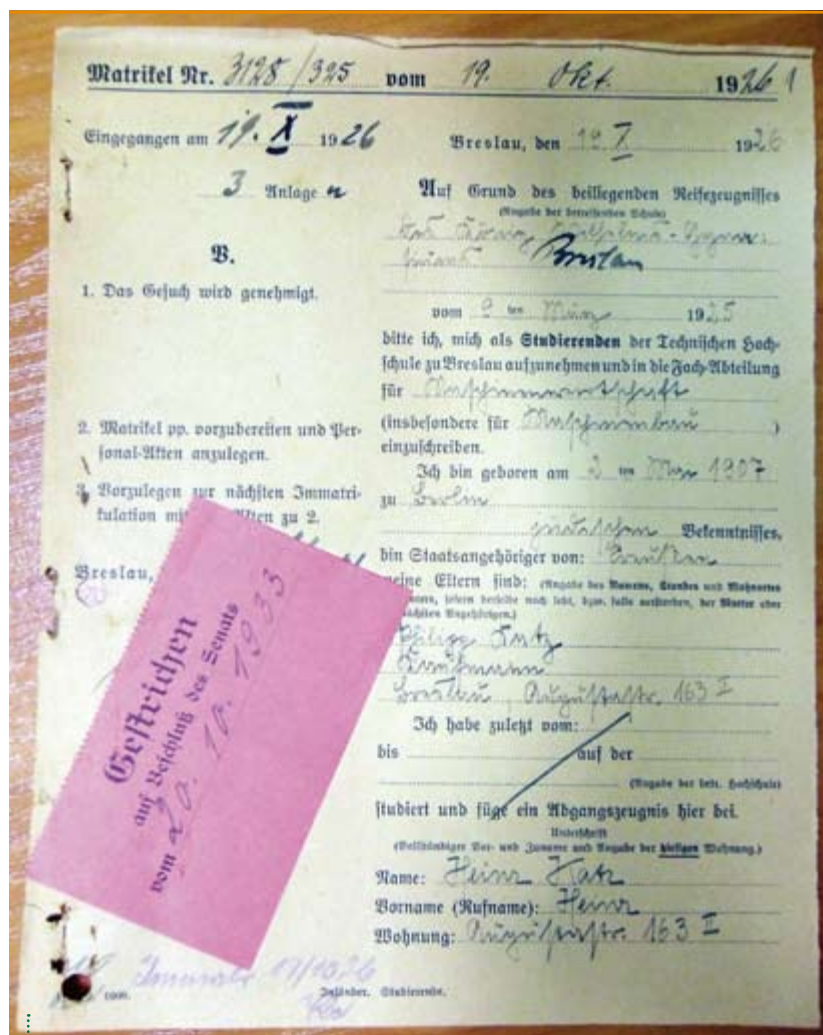 Matrikel Nr. 3128/325 vom 19. Okt. 1926 1
Eingegangen am 19. X 1926
3 Anlage n
V.
1. Das Gesuch wird genehmigt.
2. Matrikel pp. vorzubereiten und Per-
sonal-Akten anzulegen.
3. Vorzulegen zur nächsten Immatri-
kulation mit Akten zu 2.
Breslau,
Gestrichen
auf Beschluß des Senats
vom 20. 10. 1933
Breslau, den 19. X 1926
Auf Grund des beiliegenden Reifezeugnisses
(Angabe der betreffenden Schule)
König Wilhelms-Gymna-
Breslau
vom 9 ten März 1925
bitte ich, mich als Studierenden der Technischen Hoch-
schule zu Breslau aufzunehmen und in die Fach-Abteilung
für Maschinenwirtschaft
(insbesondere für Maschinenbau )
einzuschreiben.
Ich bin geboren am 2 ten 1907
zu Berlin
jüdischen Bekenntnisses,
bin Staatsangehöriger von: Preußen
meine Eltern sind: (Angabe des Namens, Standes und Wohnortes
sofern derselbe noch lebt, bzw. falls verstorben, der Mutter oder
nächsten Angehörigen.)
Philipp Katz
Kaufmann
Breslau, Augustastr. 163 II
Ich habe zuletzt vom:
bis auf der
(Angabe der betr. Hochschule)
studiert und füge ein Abgangszeugnis hier bei.
Unterschrift
(Vollständiger Vor- und Zuname und Angabe der hiesigen Wohnung.)
Name: Heinz Katz
Vorname (Rufname): Heinz
Wohnung: Augustastr. 163 II
Inländer. Studierende.